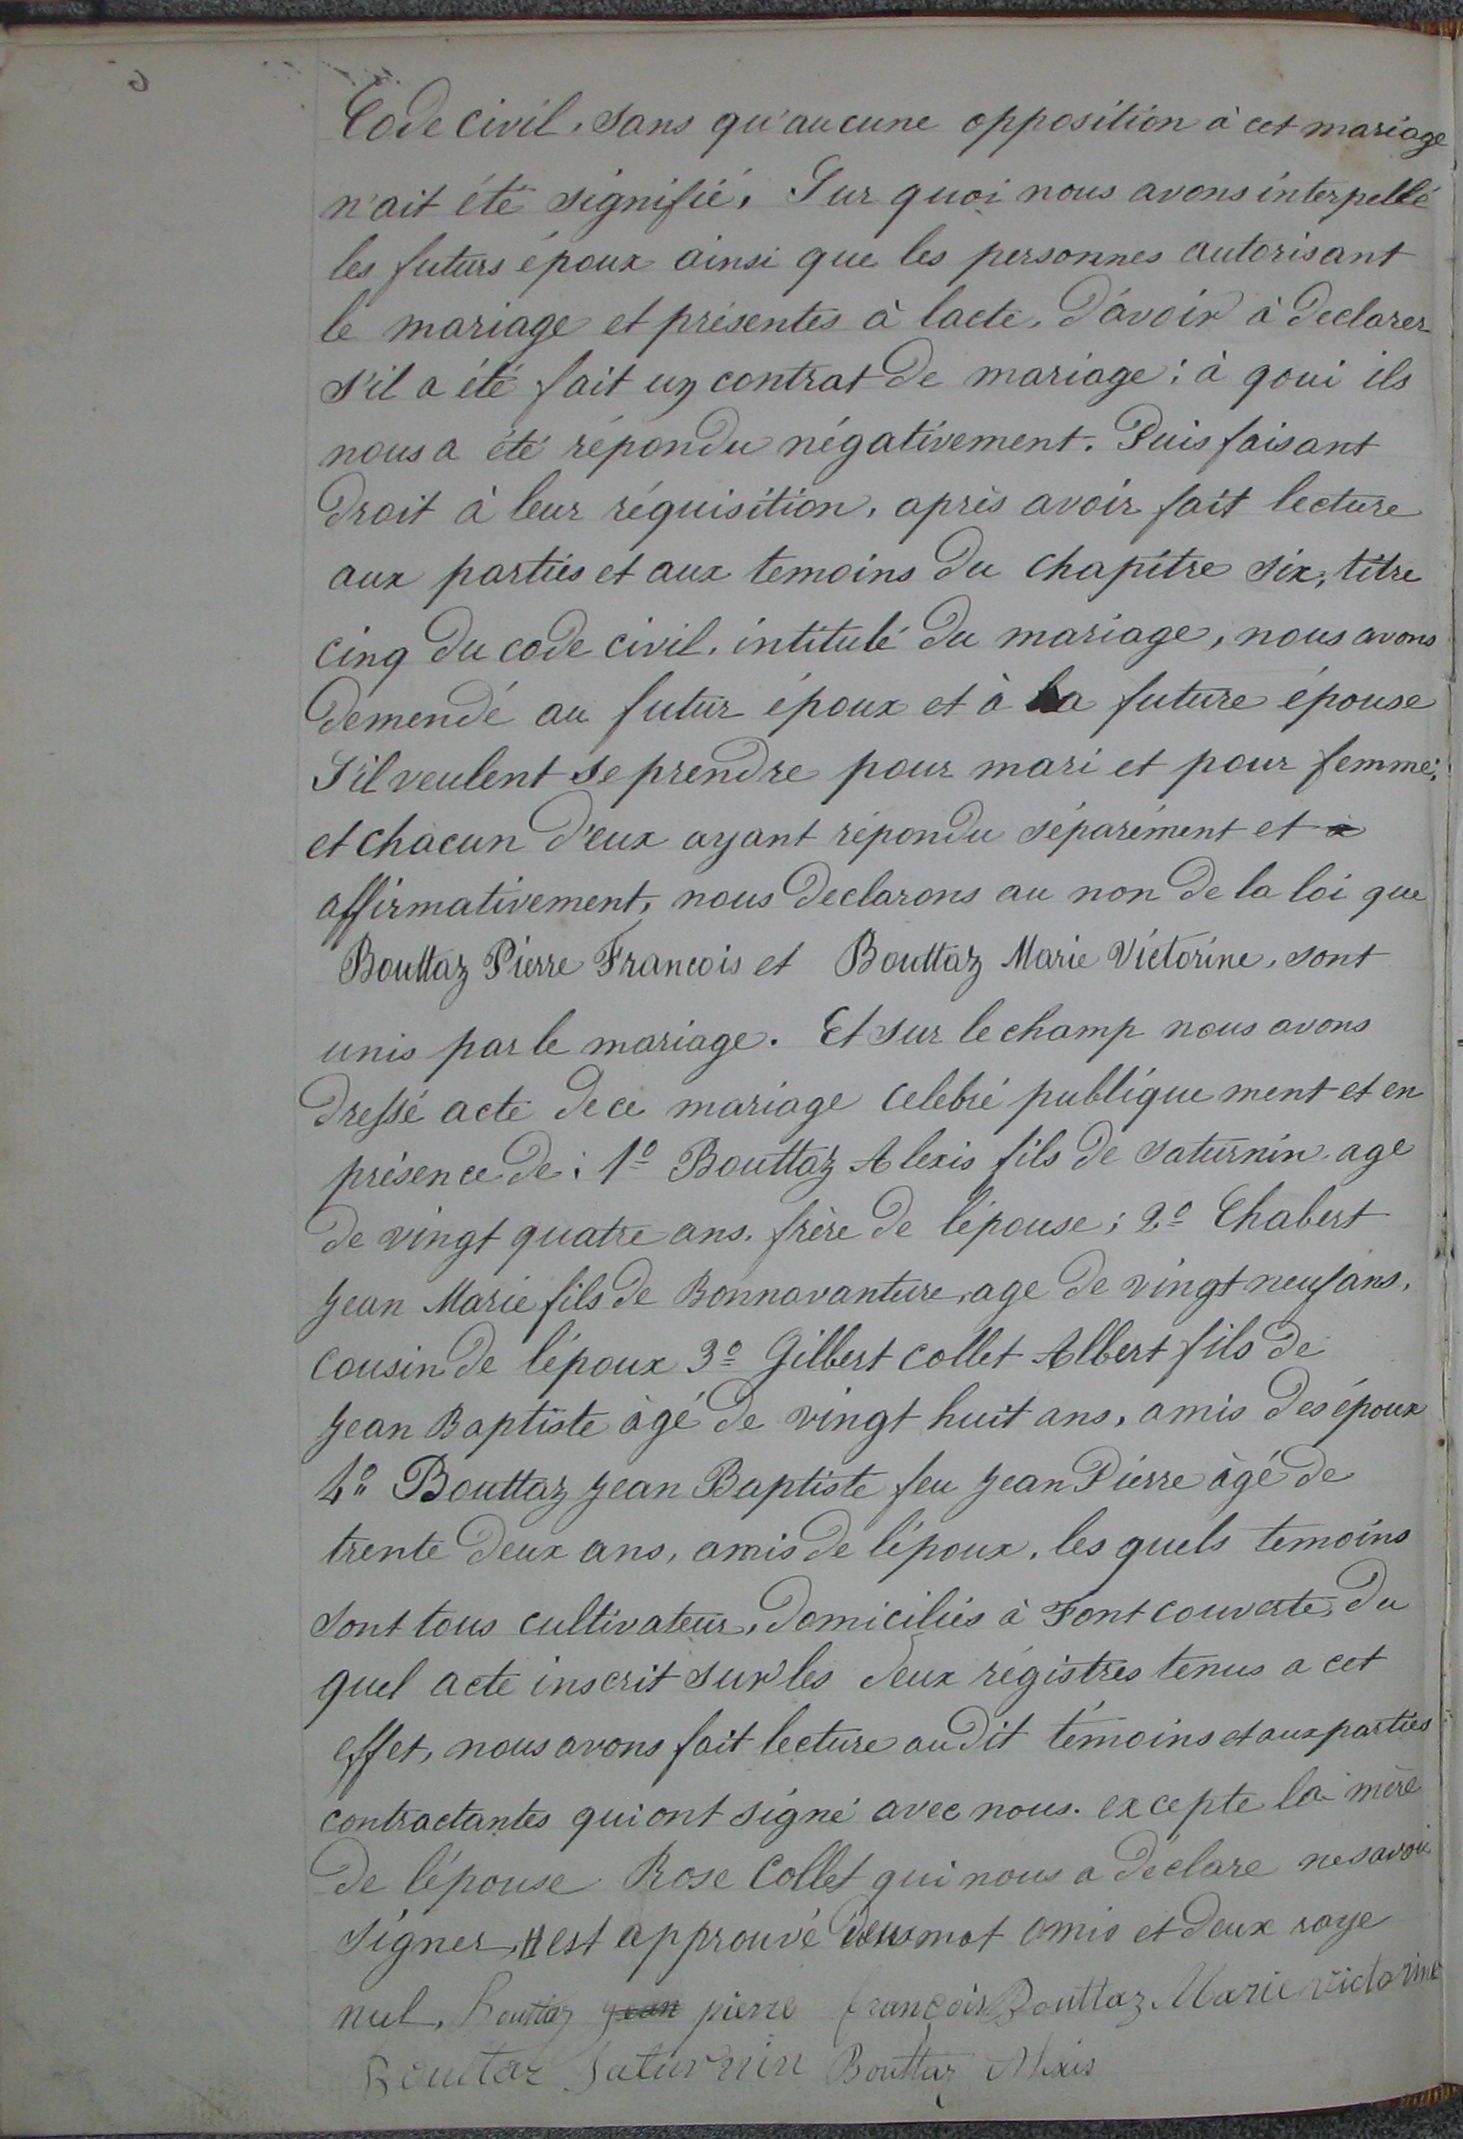 Code civil, sans qu'aucune opposition à cet mariage
n'ait été signifié. Sur quoi nous avons interpellé
les futurs époux ainsi que les personnes autorisant
le mariage et présentes à lacte, d'avoir à declarer
s'il a été fait un contrat de mariage; à qoui ils
nous a été répondu négativement. Puis faisant
droit à leur réquisition, après avoir fait lecture
aux parties et aux temoins du chapitre six, titre
cinq du code civil, intitulé du mariage, nous avons
demendé au futur époux et à la future épouse
S'il veulent se prendre pour mari et pour femme;
et chacun d'eux ayant répondu séparément et a
affirmativement, nous declarons au non de la loi que
Bouttaz Pierre Francois et Bouttaz Marie Victorine, sont
unis par le mariage. Et sur le champ nous avons
dressé acte de ce mariage celebré publique ment et en
présence de: 1º Bouttaz Alexis fils de Saturnin age
de vingt quatre ans, frère de l'épouse; 2º Chabert
Jean Marie fils de Bonnavanture, age de vingt neuf ans,
cousin de l'époux 3º Gilbert collet Albert fils de
Jean Baptiste àgé de vingt huit ans, amis des époux
4º Bouttaz Jean Baptiste feu Jean Pierre àgé de
trente deux ans, amis de l'époux, les quels temoins
sont tous cultivateur, domiciliés à Font couverte, du
quel acte inscrit sur les deux régistres tenus a cet
effet, nous avons fait lecture au dit témoins et aux parties
contractantes qui ont signé avec nous. excepte la mère
de l'épouse Rose Collet qui nous a déclare ne savoir
signer, est approuvé mot omis et deux raye
nul. Bouttaz Jean pierre françois Bouttaz Marie victorine
Bouttaz Saturnin Bouttaz Alexis